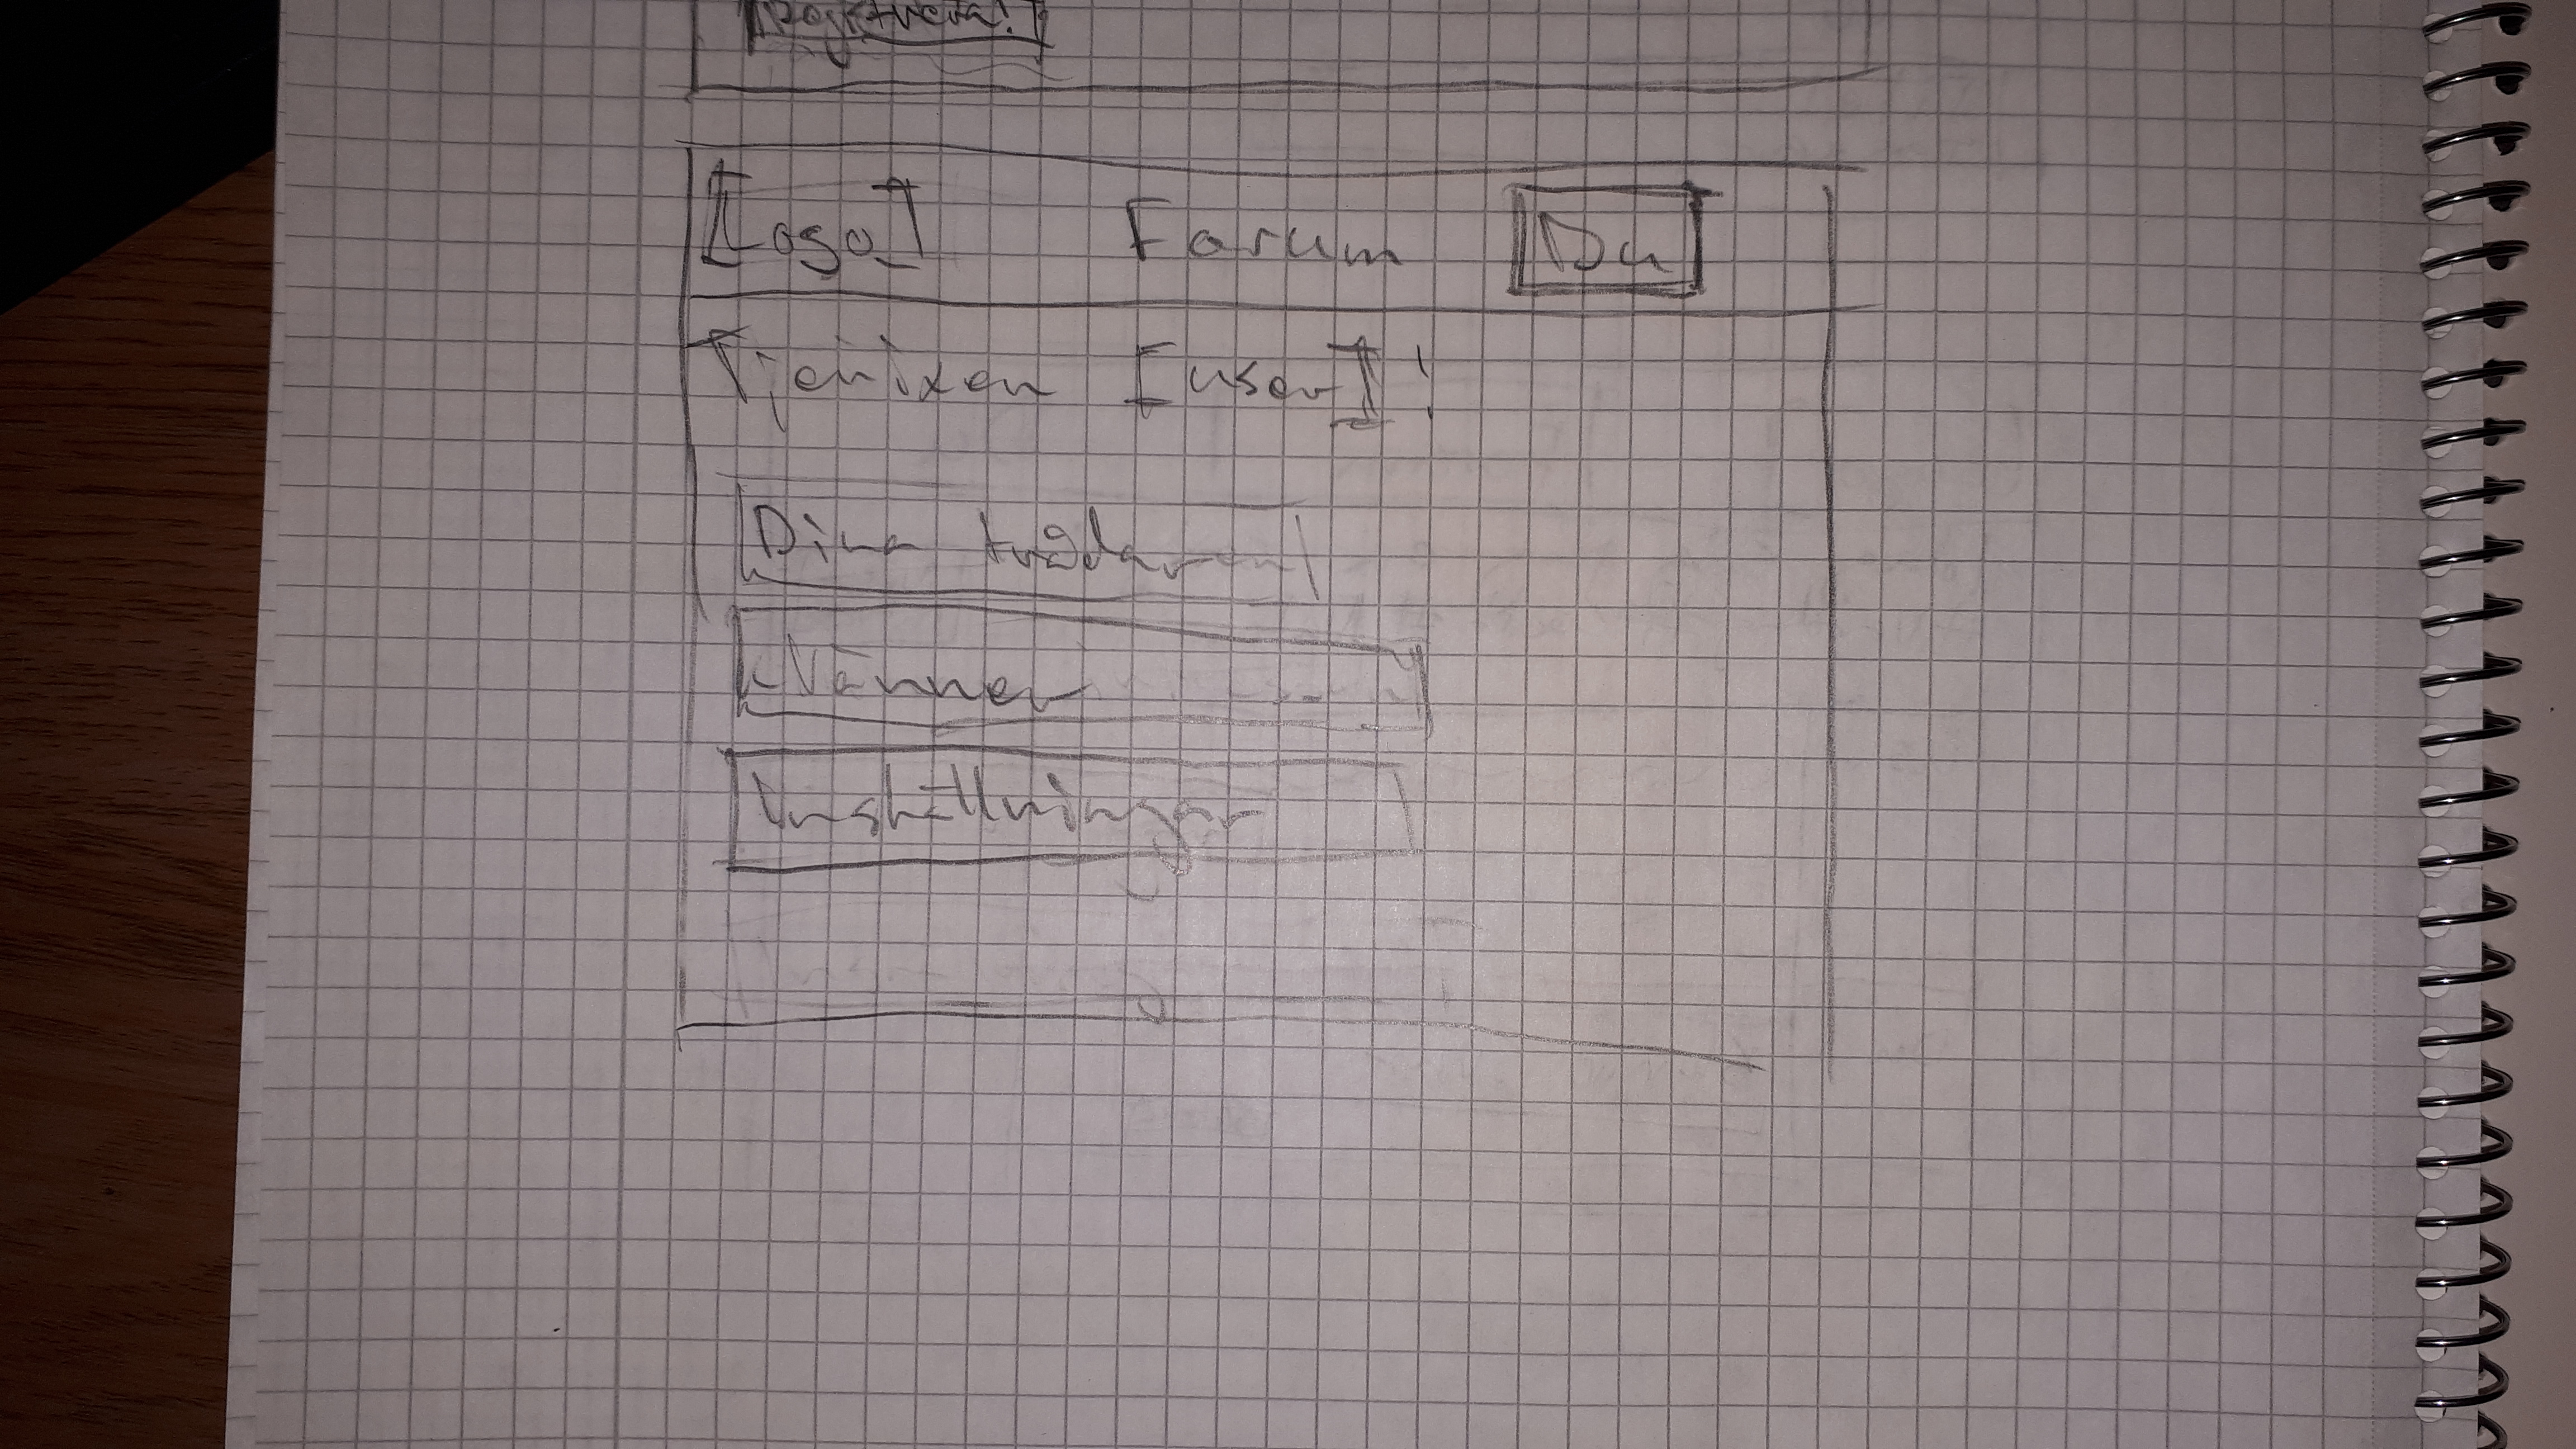 Registrera!
[Logo] Forum Du
Tjenixen [user]!
Dina trådar
Vänner
Inställningar